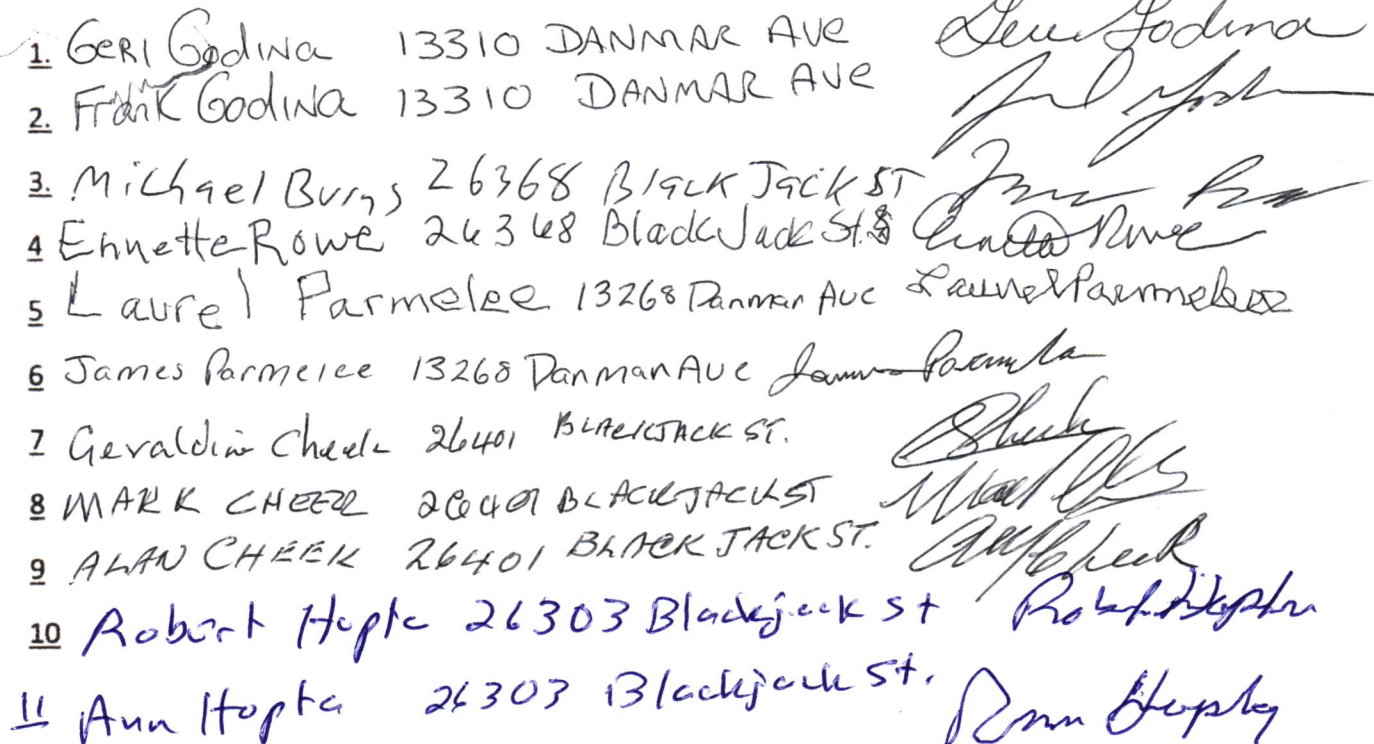 1. GERI GodINA 13310 DANMAR AVE Geri Godina
2. Frank GodINA 13310 DANMAR AVE
3. Michael Burns 26368 Black Jack ST
4 Ennette Rowe 26368 Black Jack St. Ennette Rowe
5 Laurel Parmelee 13268 Danmar Ave Laurel Parmelee
6 James Parmelee 13268 Danman Ave James
7 Geraldin Cheek 26401 BLACKJACK ST. Cheek
8 MARK CHEEK 26401 BLACKJACK ST
9 ALAN CHEEK 26401 BLACK JACK ST. Cheek
10 Robert Hopta 26303 Blackjack St Robert
11 Ann Hopta 26303 Blackjack St. Ann